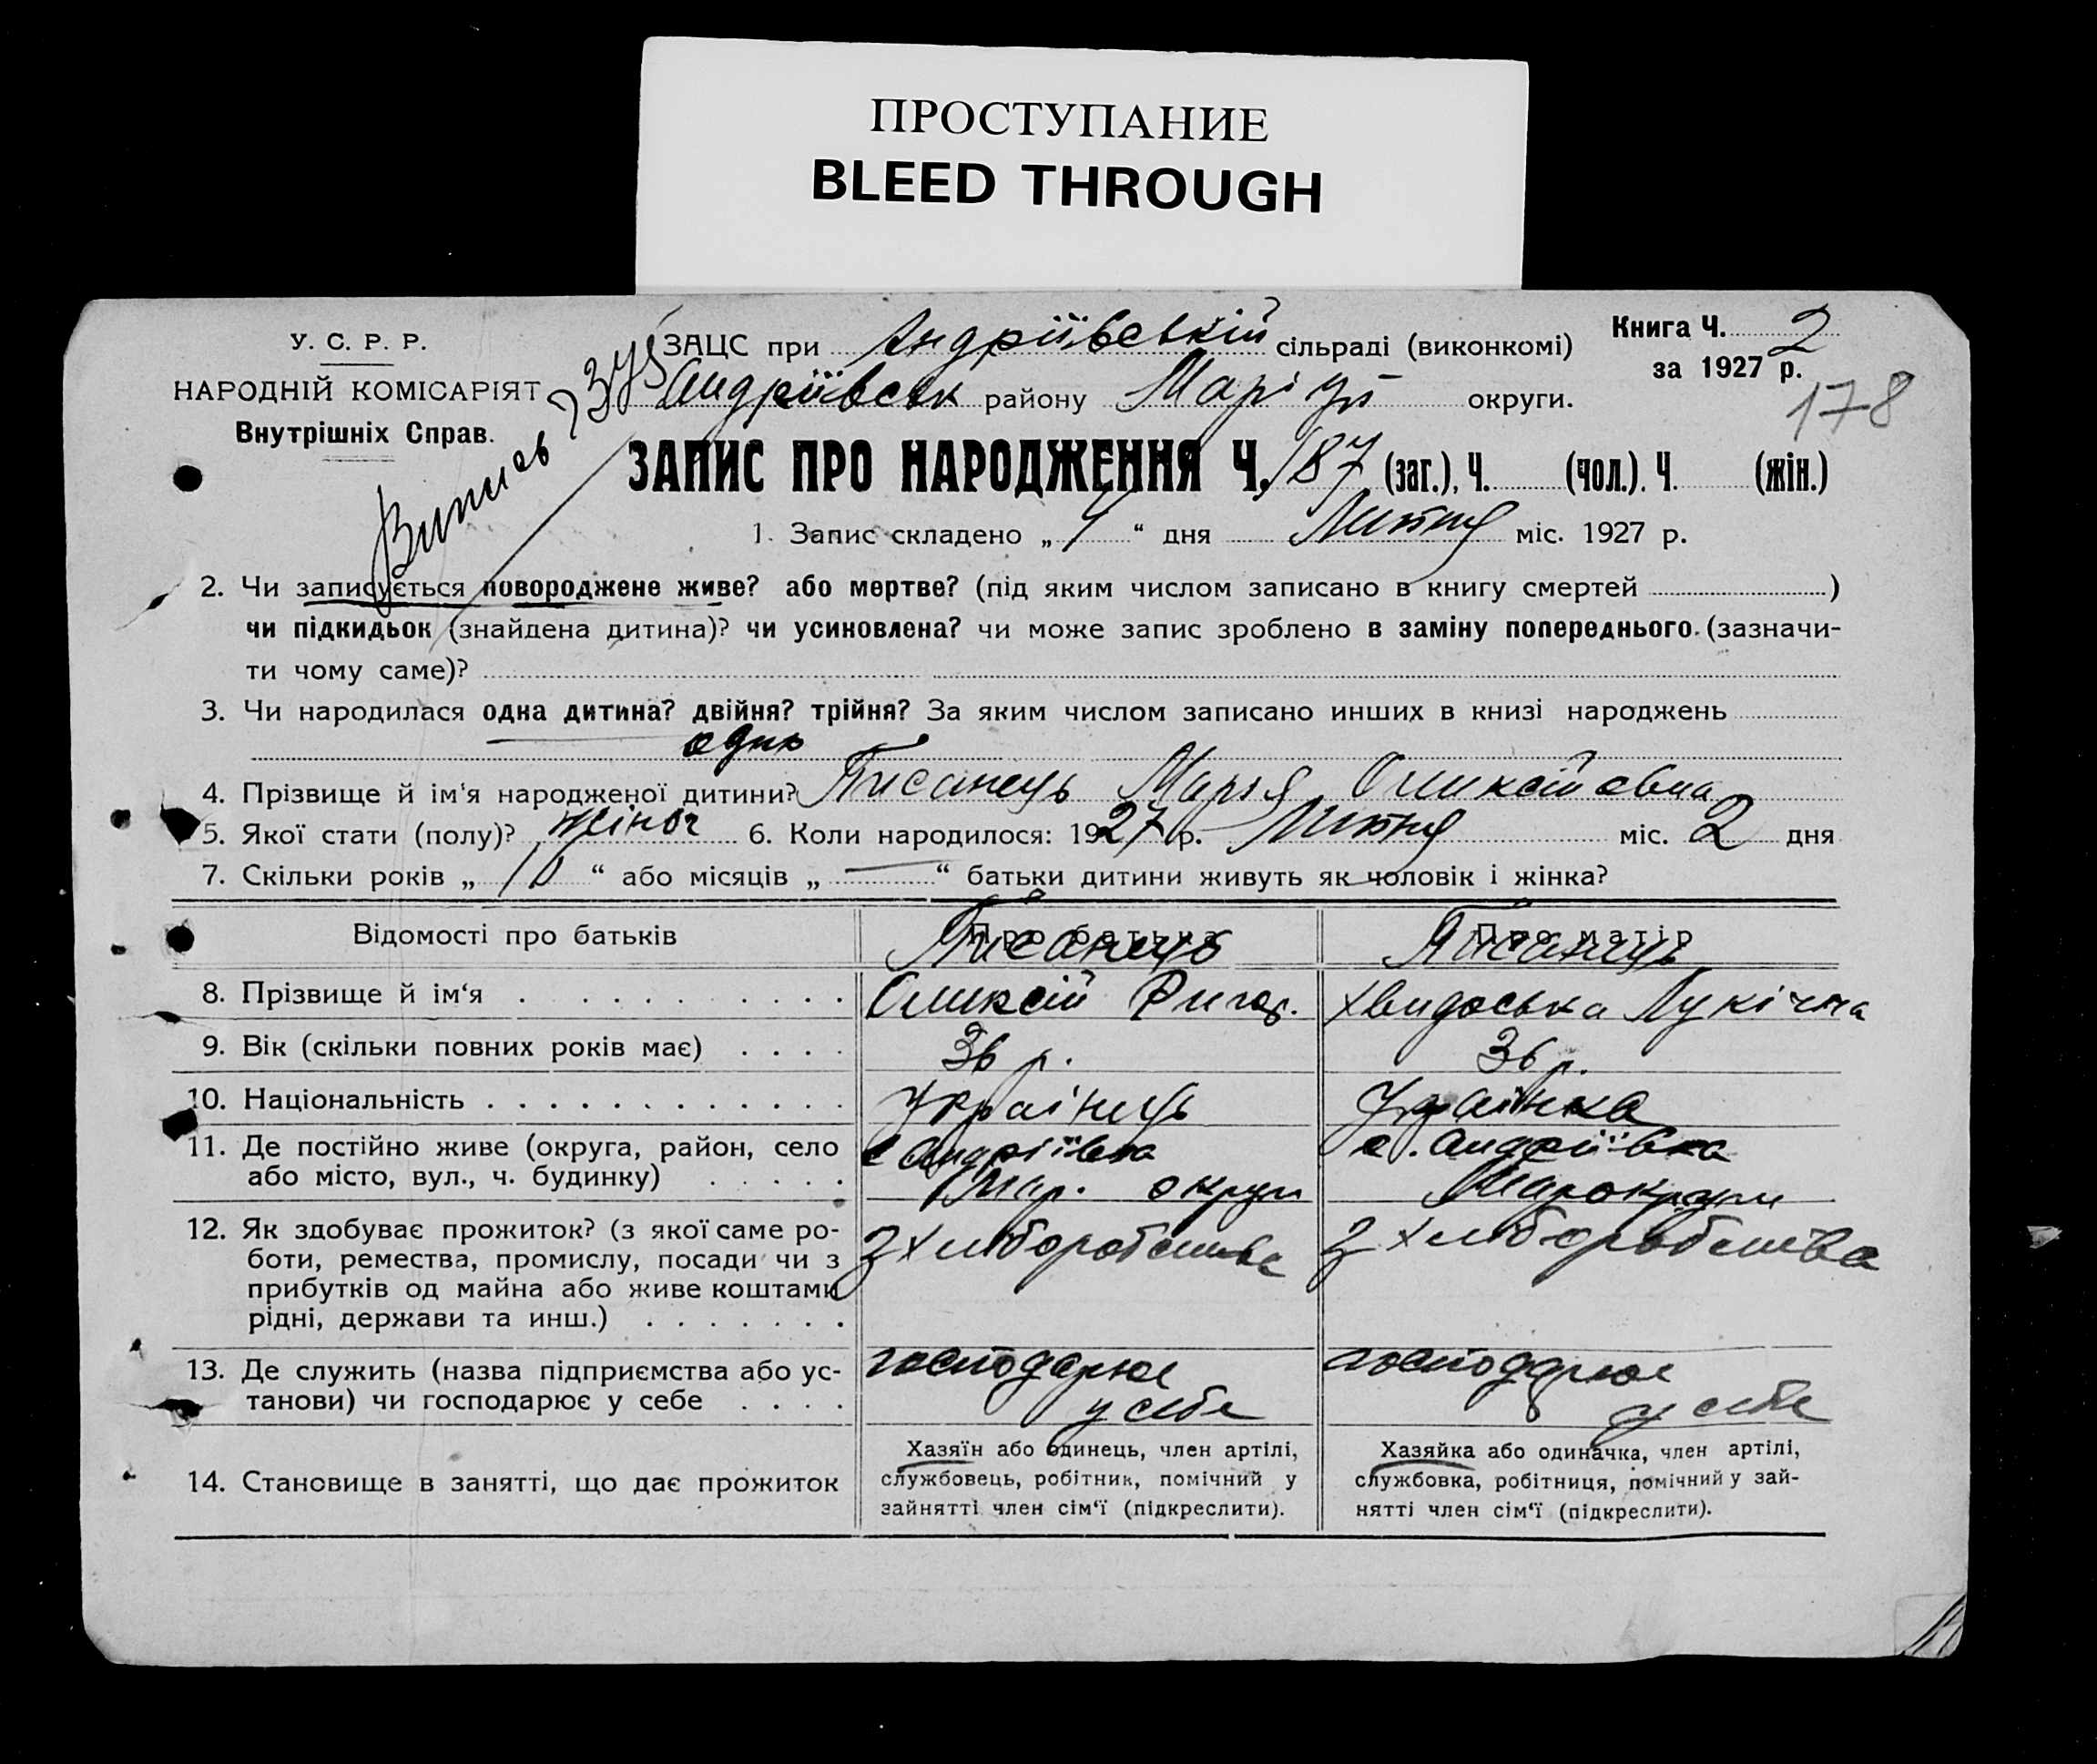 ПРОСТУПАНИЕ
BLEED THROUGH
У. С. Р. Р.
НАРОДНІЙ КОМІСАРІЯТ
Внутрішніх Справ.
ЗАЦС при Андріївській сільраді (виконкомі)
Андріївськ району Маріуп округи.
Книга Ч. 2
за 1927 р.
178
ЗАПИС ПРО НАРОДЖЕННЯ Ч. 187 (заг.), Ч. (чол.). Ч. (жін.)
1. Запис складено „ 4 “ дня Липня міс. 1927 р.
2. Чи записується новороджене живе? або мертве? (під яким числом записано в книгу смертей )
чи підкидьок (знайдена дитина)? чи усиновлена? чи може запис зроблено в заміну попереднього (зазначи-
ти чому саме)?
3. Чи народилася одна дитина? двійня? трійня? За яким числом записано инших в книзі народжень
одна
4. Прізвище й ім‘я народженої дитини? Писанець Марія Оликсійовна
5. Якої стати (полу)? жіноч 6. Коли народилося: 1927 р. Липня міс. 2 дня
7. Скільки років „ 10 “ або місяців „ — “ батьки дитини живуть як чоловік і жінка?
Відомості про батьків Про батька Про матір
Писанець Писанець
8. Прізвище й ім‘я Оликсій Григ. Хвидоська Лукічна
9. Вік (скільки повних років має) 36 р. 36 р.
10. Національність Українець Українка
11. Де постійно живе (округа, район, село с Андріївка с. Андріївка
або місто, вул., ч. будинку) Мар. округи Марокруги
12. Як здобуває прожиток? (з якої саме ро- з хліборобства з хліборобства
боти, ремества, промислу, посади чи з
прибутків од майна або живе коштами
рідні, держави та инш.)
13. Де служить (назва підприємства або ус- господарює господарює
танови) чи господарює у себе у себе у себе
14. Становище в занятті, що дає прожиток
Хазяїн або одинець, член артілі,
службовець, робітник, помічний у
зайнятті член сім‘ї (підкреслити).
Хазяйка або одиначка, член артілі,
службовка, робітниця, помічний у зай-
нятті член сім‘ї (підкреслити).